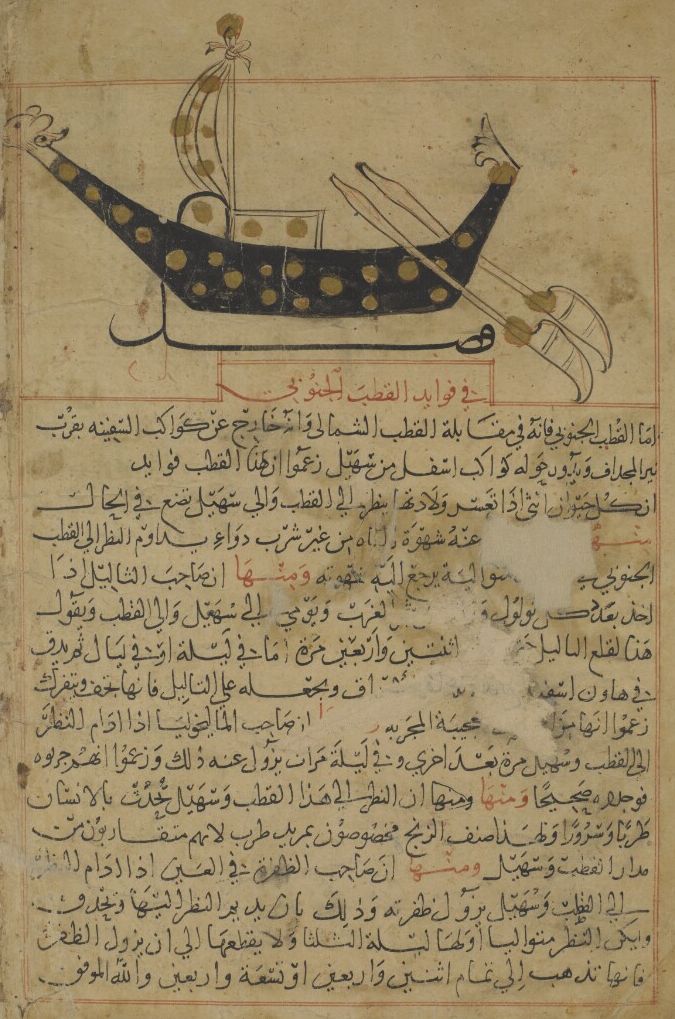 فصل
في فوايد القطب الجنوبي
اما القطب الجنوبي فانه في مقابلة القطب الشمالي وانه خارج عن كواكب السفينه بقرب
نير المجداف ويدور حوله كواكب اسفل من سهيل زعموا ان لهذا القطب فوايد
ان كل حيوان انثى اذا تعسر ولادتها ينظر الي القطب والي سهيل تضع في الحال
منها عنه شهوة الباه من غير شرب دواء يداوم النظر الي القطب
الجنوبي متوالية يرجع اليه شهوته ومنها ان صاحب الثاليل اذا
اخذ بعدد كل ثولول الغرب ويومي الي سهيل والي القطب ويقول
هذا لقلع الثاليل اثنتين واربعين مرة اما في ليلة او في ليال ثم يدق
في هاون اسف ويجعله على الثاليل فانها تجف وتتفرك
زعموا انها عجيبة المجربه ان صاحب الماليخوليا اذا ادام النظر
الي القطب وسهيل مرة بعد اخري وفي ليلة مرات يزول عنه ذلك وزعموا انهم جربوه
فوجدوه صحيحا ومنها ومنها ان النظر الي هذا القطب وسهيل يحدث بالانسان
طربا وسرورا ولهذا صنف الزنج مخصوصون بمزيد طرب لانهم متقاربون من
مدار القطب وسهيل ومنها ان صاحب الظفرة في العين اذا ادام النظر
الي القطب وسهيل يزول ظفرته وذلك بان يديم النظر اليها ويحدق
وليكن النظر متواليا اولها ليلة الثلثا ولا يقطعها الي ان يزول الظفرة
فانها تذهب الي تمام اثنين واربعين او تسعة واربعين والله الموفق